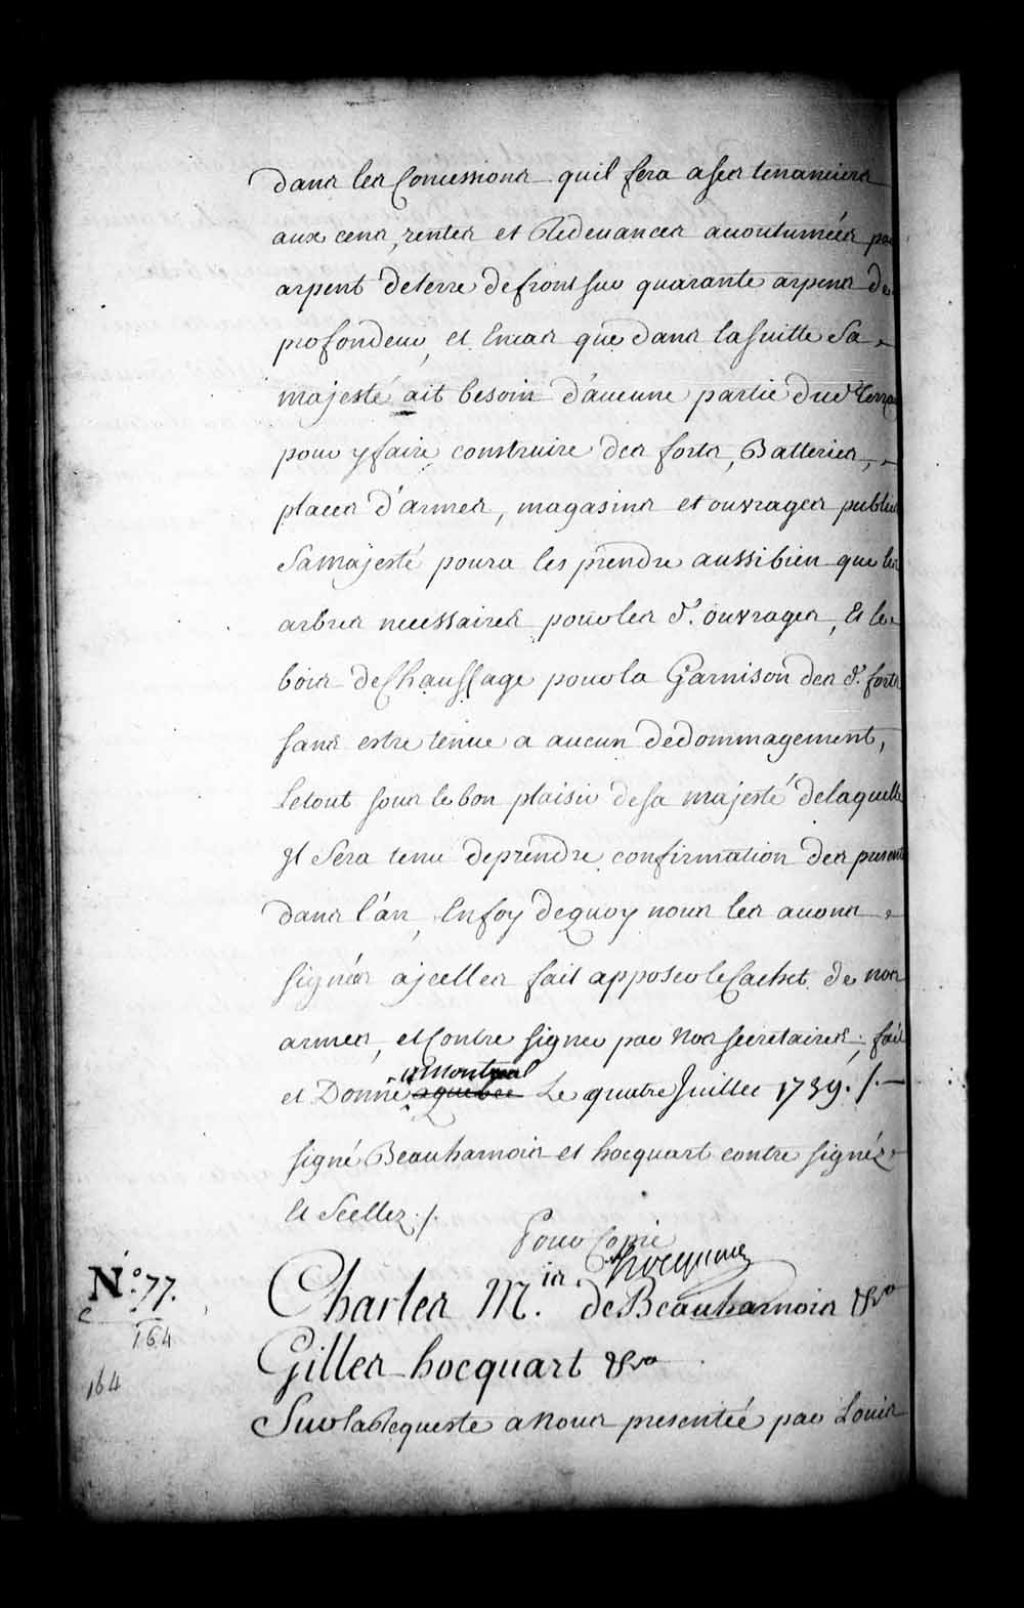 dans les Concessions quil fera a ses tenanciers
aux cens, rentes et Redevances accoutumées par
arpent de terre de front sur quarante arpens de
profondeur, et En cas que dans la suitte Sa
majesté ait besoin d'aucune partie dud terrain
pour y faire construire des forts, Batteries,
places d'armes, magasins et ouvrages publics
Sa majesté poura les prendre aussi bien que les
arbres necessaires pour les d.^ts ouvrages, Et le
bois de Chauffage pour la Garnison des d.^ts forts
sans estre tenue a aucun dedommagement,
Le tout sous le bon plaisir de sa majesté de laquelle
Il Sera tenu de prendre confirmation des presentes
dans l'an, En foy de quoy nous les avons
signées a jcelles fait apposer le Cachet de nos
armes, et Contre signer par Nos secretaires; fait
et Donné a Montreal a quebec Le quatre Juillet 1739. /. —
signé Beauharnois et hocquart contre signéz
Et Scellez ./.
Pour Copie
hocquart
N.° 77.
164
164
Charles M.is de Beauharnois &ra
Gilles hocquart &ra
Sur la Requeste a Nous presentée par Louis